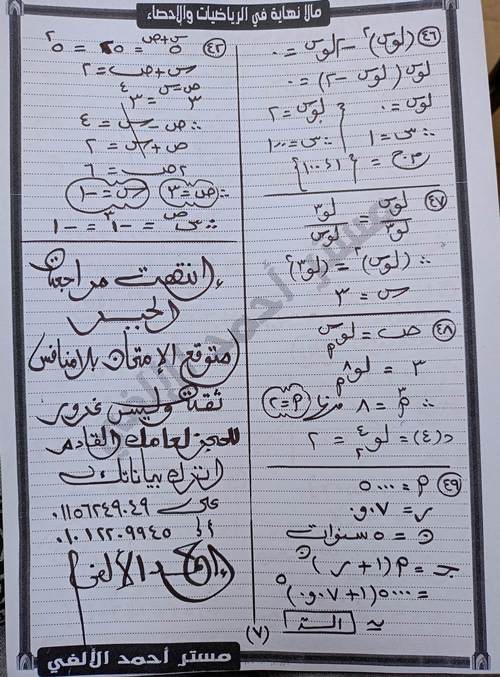 مالا نهاية في الرياضيات والإحصاء
٤٦
(لوس)^٢ - ٢لوس = ٠
لوس (لوس - ٢) = ٠
لوس = ٠ | لوس = ٢
∴ س = ١ | ∴ س = ١٠٠
م.ح = {١، ١٠٠}
٤٧
لوس / لو٣ = لو٣ / لوس
∴ (لوس)^٢ = (لو٣)^٢
س = ٣
٤٨
ص = لو_م س
٣ = لو_م ٨
∴ م^٣ = ٨ م = ٢
د(٤) = لو_٢ ٤ = ٢
٤٩
م = ٥٠٠٠
ر = ٠٫٠٧
ن = ٥ سنوات
جـ = م(١ + ر)^ن
= ٥٠٠٠(١ + ٠٫٠٧)^٥
≃
٤٢
٥^(س+ص) = ٢٥ = ٥^٢
س + ص = ٢
٣^(ص-س) = ٣^٤
∴ ص - س = ٤
ص + س = ٢
٢ص = ٦
∴ ص = ٣ س = -١
∴ س^ص = -١^٣ = -١
انتهت مراجعة
الجبر
متوقع الإمتحان بلا منافس
ثقة وليس غرور
للحجز لعامك القادم
اترك بياناتك
على ٠١١٥٦٢٤٩٠٤٩
أو ٠١٠١٢٢٠٩٩٤٥
أحمد الألفي
(٧)
مستر أحمد الألفي
مستر أحمد الألفي